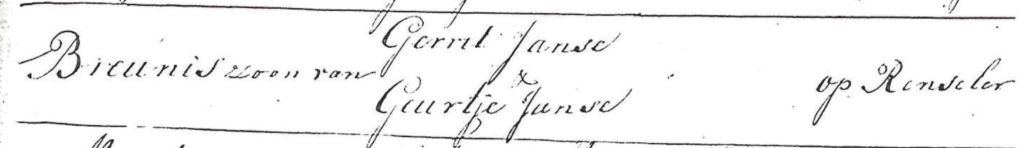 Gerrit Janse
Breunis zoon van
x
Geurtje Janse
op Renseler